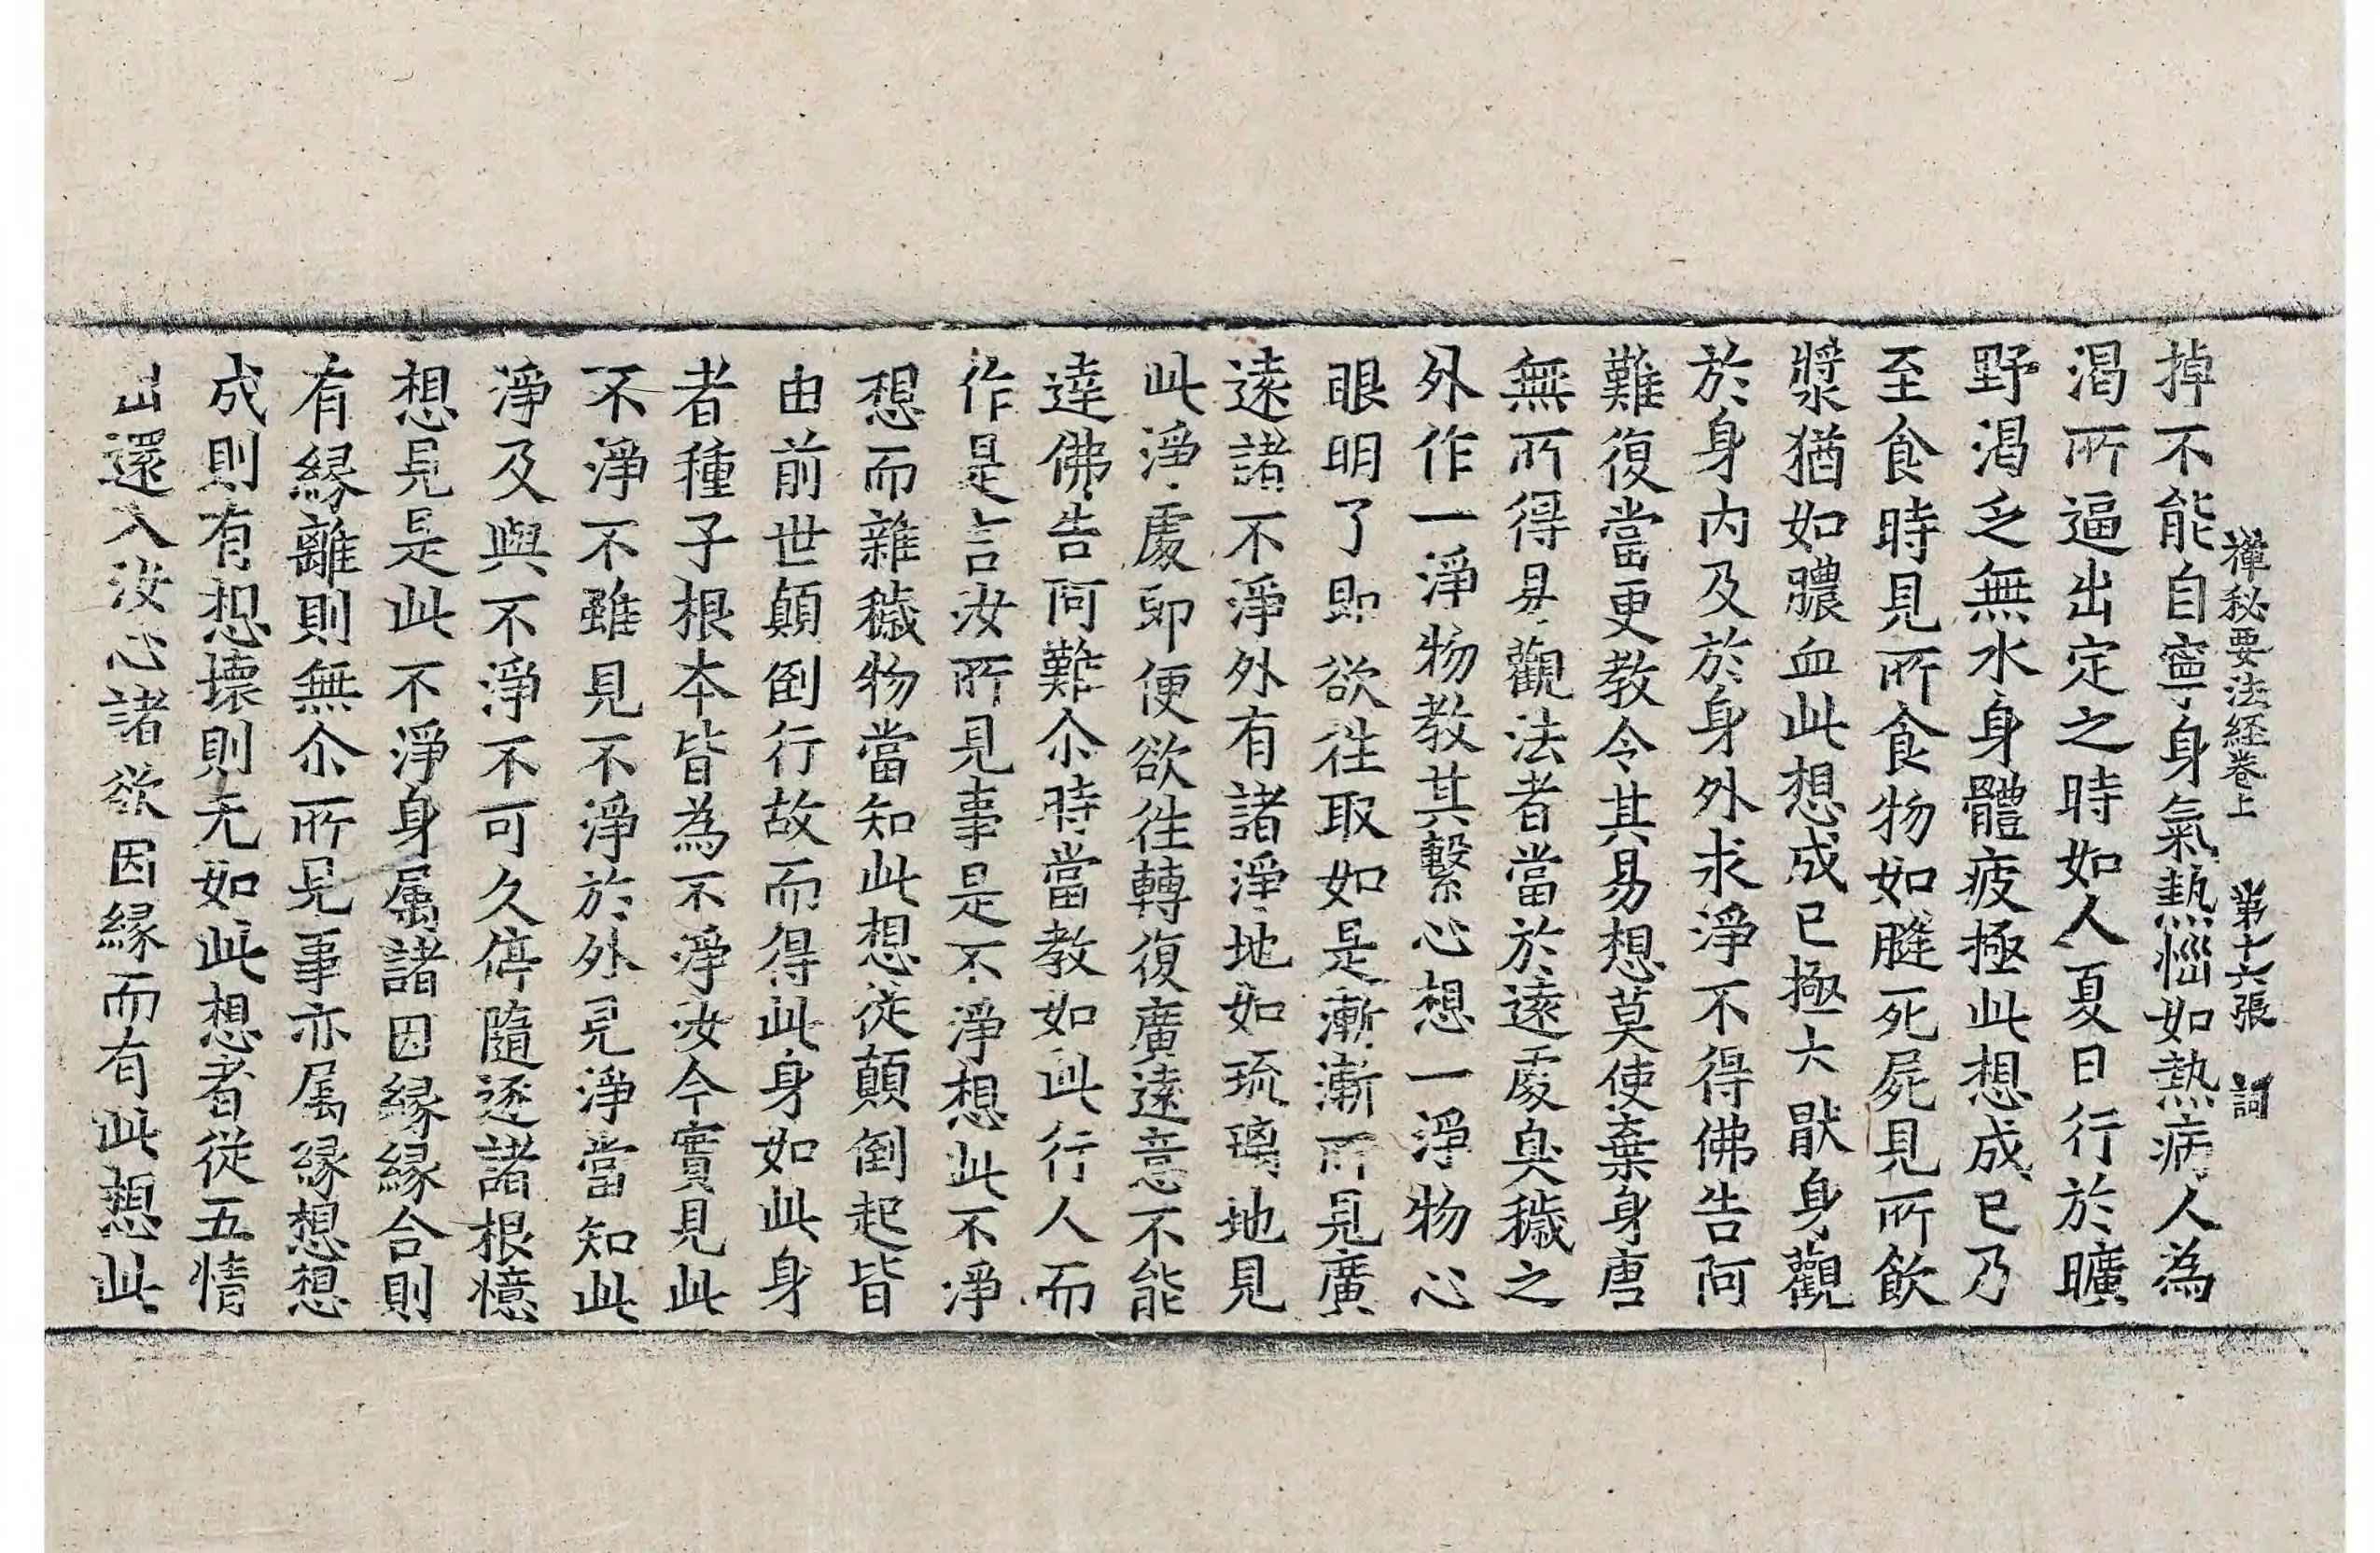 禪秘要法経卷上 第十六張 詞
掉不能自寧身氣熱惱如熱病人為
渴所逼出定之時如人夏日行於曠
野渴乏無水身體疲極此想成已乃
至食時見所食物如膖死屍見所飲
漿猶如膿血此想成已極大猒身觀
於身内及於身外求淨不得佛告阿
難復當更教令其易想莫使棄身唐
無所得易觀法者當於遠處臭穢之
外作一淨物教其繫心想一淨物心
眼明了即欲往取如是漸漸所見廣
遠諸不淨外有諸淨地如琉璃地見
此淨處即便欲往轉復廣遠意不能
達佛告阿難尒時當教如此行人而
作是言汝所見事是不淨想此不淨
想而雜穢物當知此想從顛倒起皆
由前世顛倒行故而得此身如此身
者種子根本皆為不淨汝今實見此
不淨不雖見不淨於外見淨當知此
淨及與不淨不可久停隨逐諸根憶
想見是此不淨身属諸因緣緣合則
有緣離則無尒所見事亦属緣想想
成則有想壞則无如此想者從五情
出還入汝心諸欲因緣而有此想此